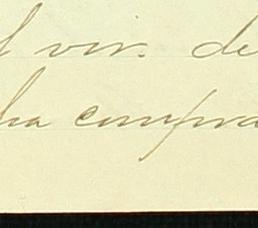 vir. de
ha compra